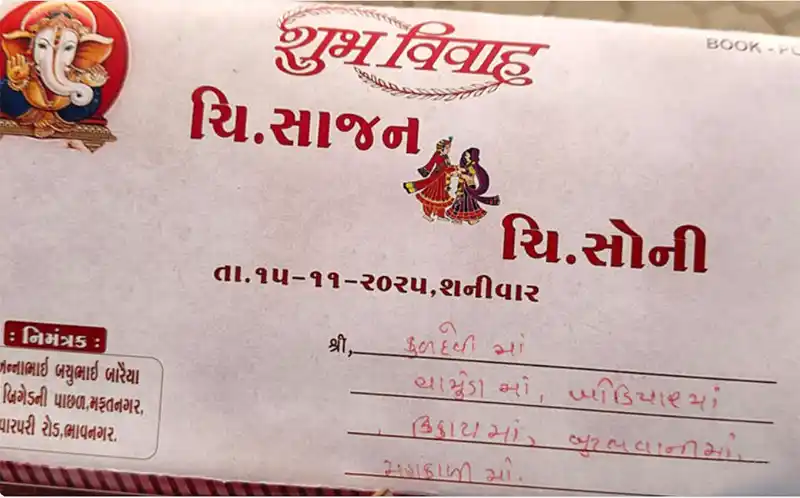 BOOK - PO
શુભ વિવાહ
ચિ.સાજન
ચિ.સોની
તા.૧૫-૧૧-૨૦૨૫,શનીવાર
: નિમંત્રક :
ન્નાભાઈ બચુભાઈ બારૈયા
બ્રિગેડની પાછળ,મફતનગર,
વારપરી રોડ,ભાવનગર.
શ્રી, કુળદેવી માં
ચામુંડા માં, ખોડિયાર માં
માં, માં,
માં.